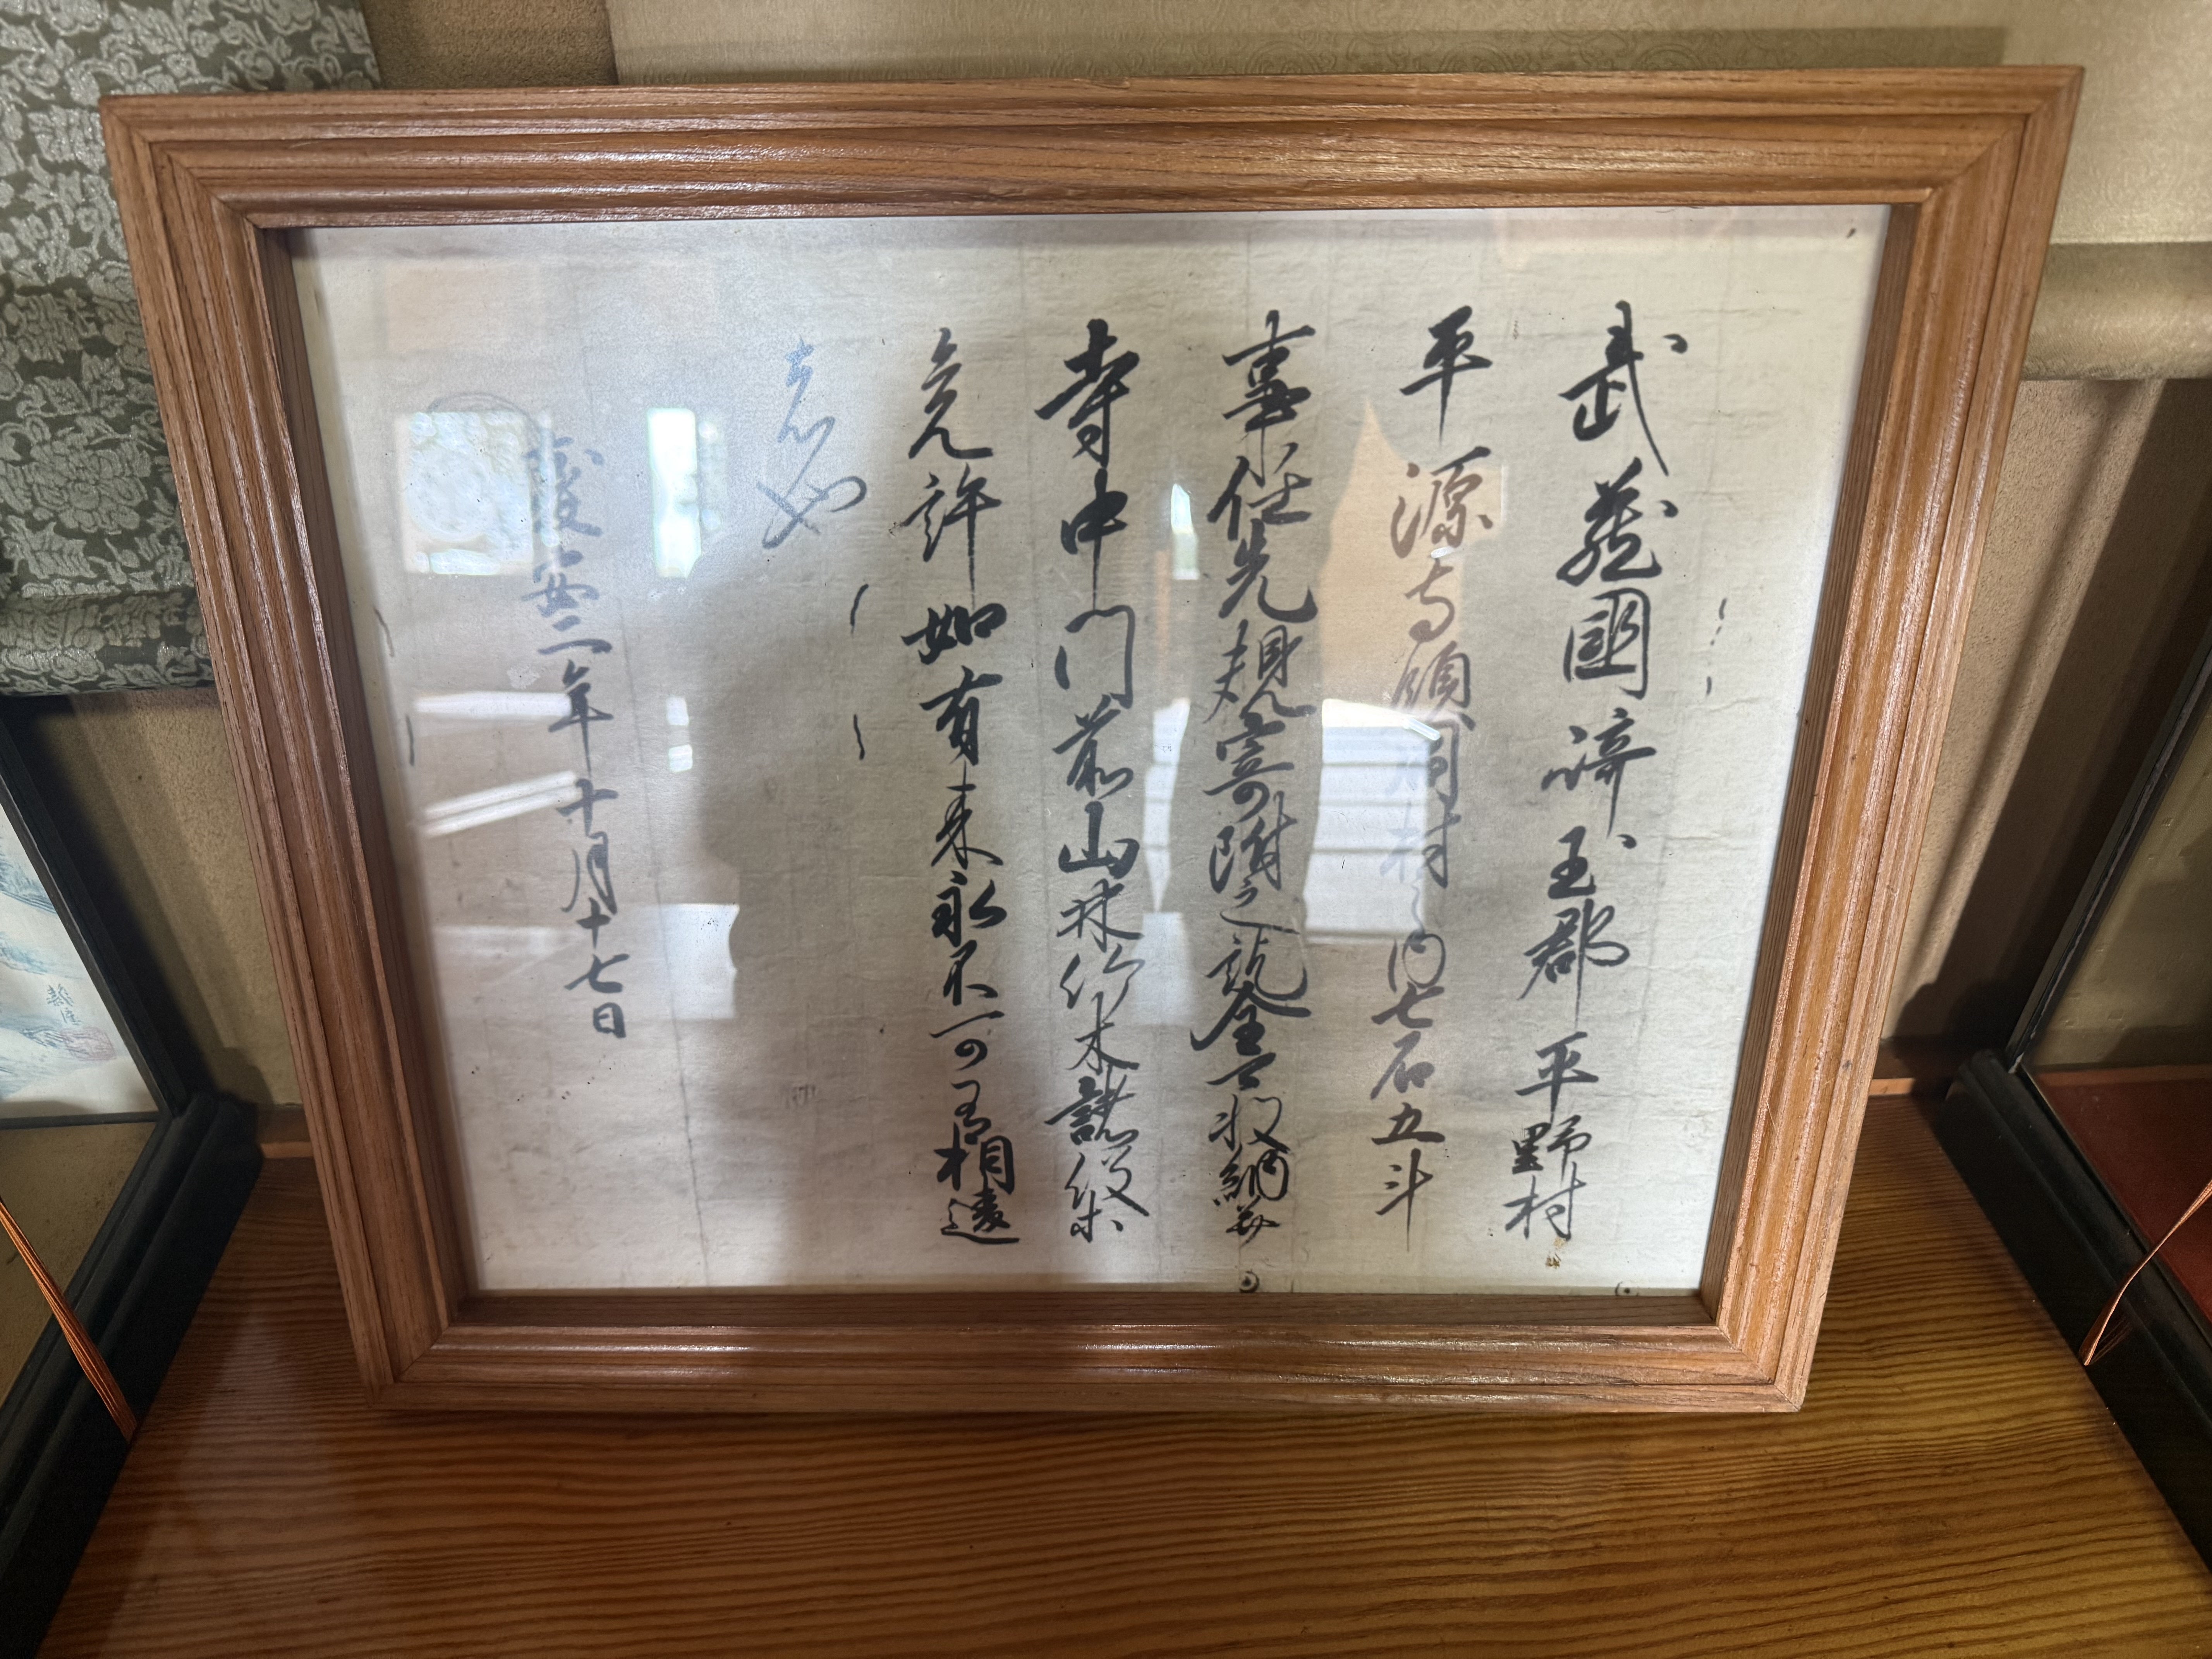 武蔵國﨑玉郡平野村
平源寺領同村之内七石五斗
事任先規寄附之訖全可収納并
寺中門前山林竹木諸役等
免許如有来永不可有相違
者也
慶安二年十月十七日